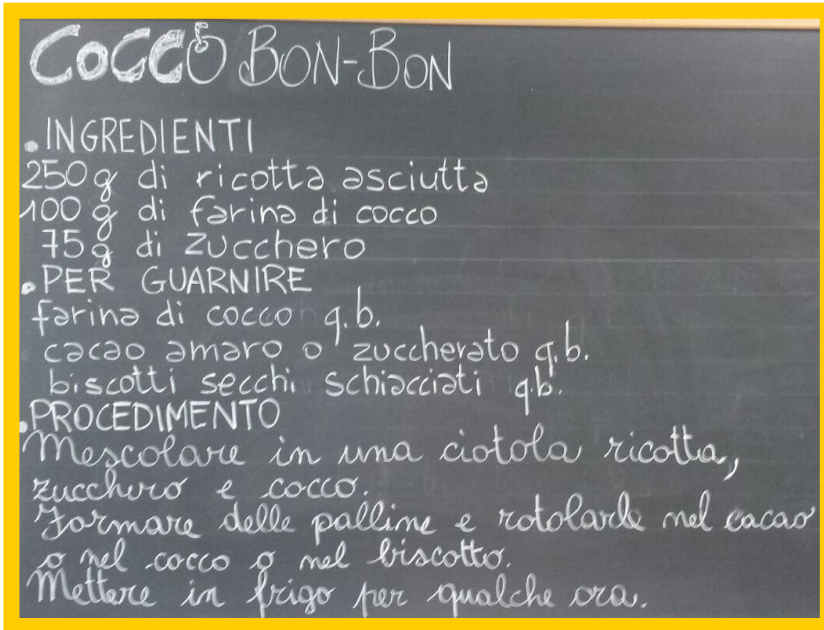 COCCO BON-BON
. INGREDIENTI
250g di ricotta asciutta
100 g di farina di cocco
75g di zucchero
. PER GUARNIRE
farina di cocco q.b.
cacao amaro o zuccherato q.b.
biscotti secchi schiacciati q.b.
. PROCEDIMENTO
Mescolare in una ciotola ricotta,
zucchero e cocco.
Formare delle palline e rotolarle nel cacao
o nel cocco o nel biscotto.
Mettere in frigo per qualche ora.